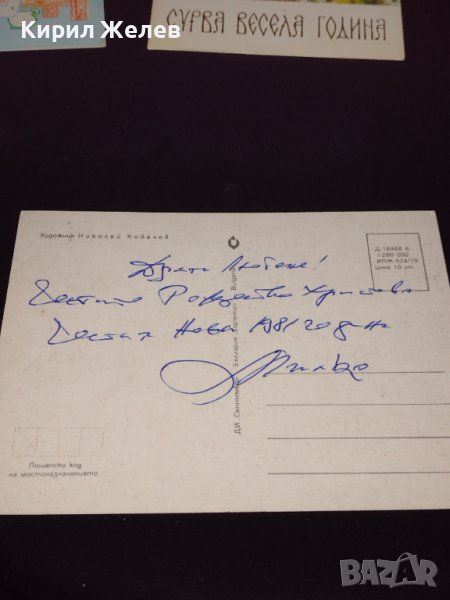 Кирил Желев
СУРВА ВЕСЕЛА ГОДИНА
Художник Николай Ковачев
Д-16468 А
1 280 000
ИПЖ-524/79
Цена 10 ст.
Драги Любене!
Честито Рождество Христово
Честита Нова 1981 година
Милко
ДИ „Септември“ България Bulgaria
Пощенски код
на местоназначението
BAZAR